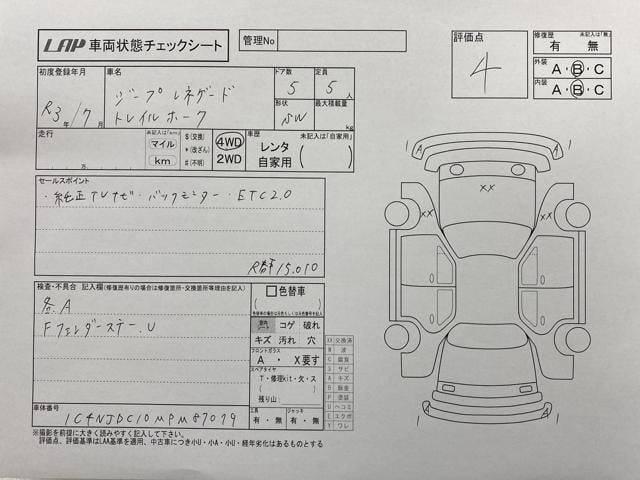 LAP 車両状態チェックシート
管理No
評価点
4
修復歴 未記入は「無」
有 無
外装
A・B・C
内装
A・B・C
初度登録年月
R3年/7月
車名
ジープレネゲード
トレイルホーク
ドア数
5
定員
5人
形状
SW
最大積載量
kg
走行
未記入は「km」
マイル
km
万
$(交換)
*(改ざん)
#(不明)
4WD
2WD
車歴 未記入は「自家用」
レンタ
自家用
( )
セールスポイント
・純正TVナビ・バックモニター・ETC2.0
R券 15.010
検査・不具合 記入欄(修復歴有りの場合は修復箇所・交換箇所等理由を記入)
各A
Fフェンダーステー.U
色替車
コゲ 破れ
キズ 汚れ 穴
フロントガラス
A ・ X要す
スペアタイヤ
T・修理kit・欠・ス
( )
残り山:
工具
有・無
ジャッキ
有・無
XX 交換済
W 波
C 腐食
S サビ
A キズ
B 鈑金
P 塗装
U ヘコミ
E エクボ
Y ワレ
車体番号
1C4NJDC10MPM87079
A
1
A
1
XX
XX
XX
A
1
A
1
※撮影を前提に大きく読みやすく記入して下さい。
評価点、評価基準はLAA基準を適用、中古車につき小U・小A・小U・経年劣化はあるものとする